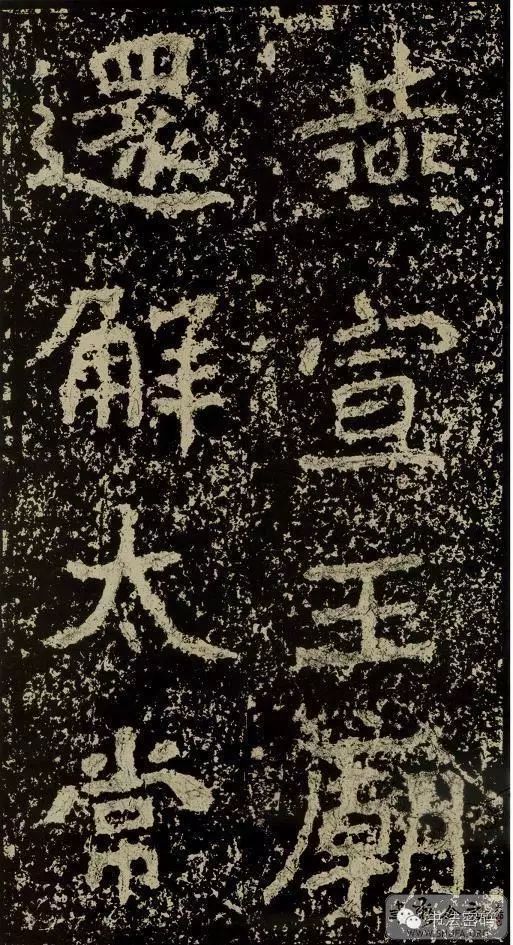 燕宣王廟
還解太常
书法密码